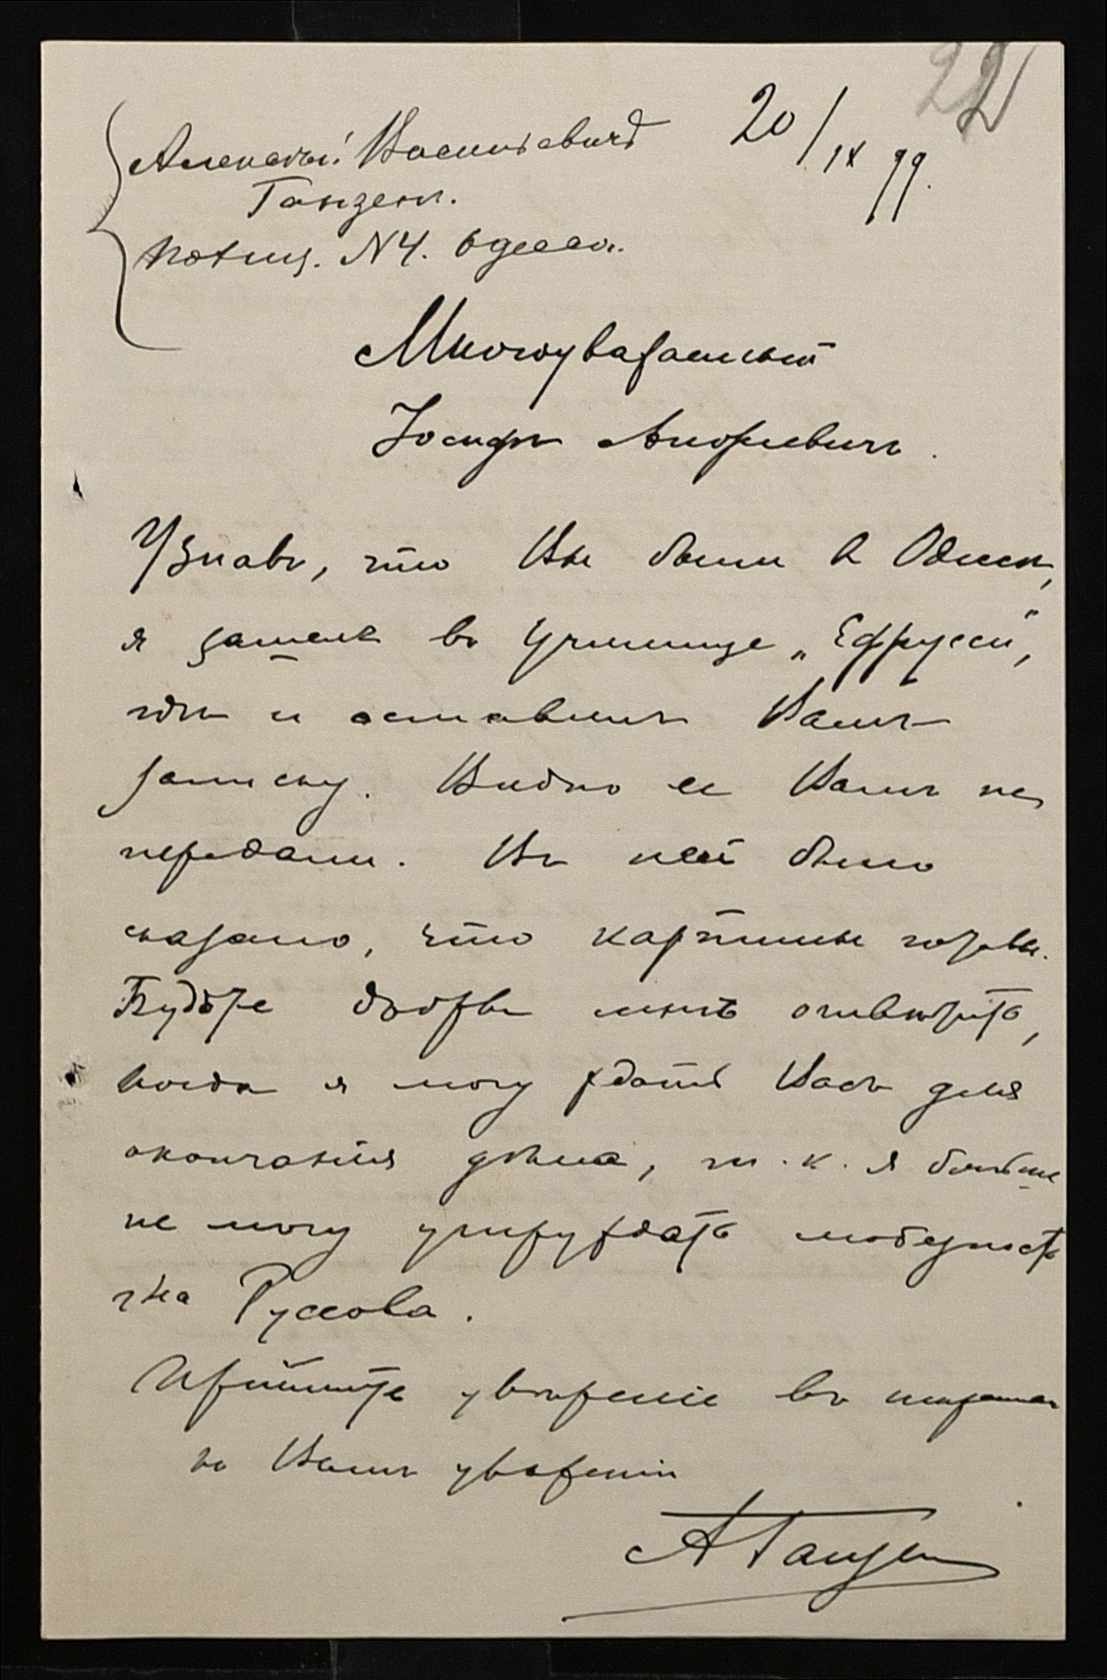 22
20/IX 99.
Алексѣй Васильевичъ
Ганзенъ.
Одесса.
Многоуважаемый
Іосифъ Андреевичъ.
Узнавъ, что Вы были въ Одессѣ,
я зашелъ въ училище „Ефрусси",
гдѣ и оставилъ Вамъ
записку. Видно ее Вамъ не
передали. Въ ней было
сказано, что картины готовы.
Будьте добры мнѣ отвѣтить,
когда я могу ждать Васъ для
окончанія дѣла, т. к. я больше
не могу утруждать любезность
г-на Руссова.
Примите увѣреніе въ искреннемъ
къ Вамъ уваженіи
А Ганзенъ